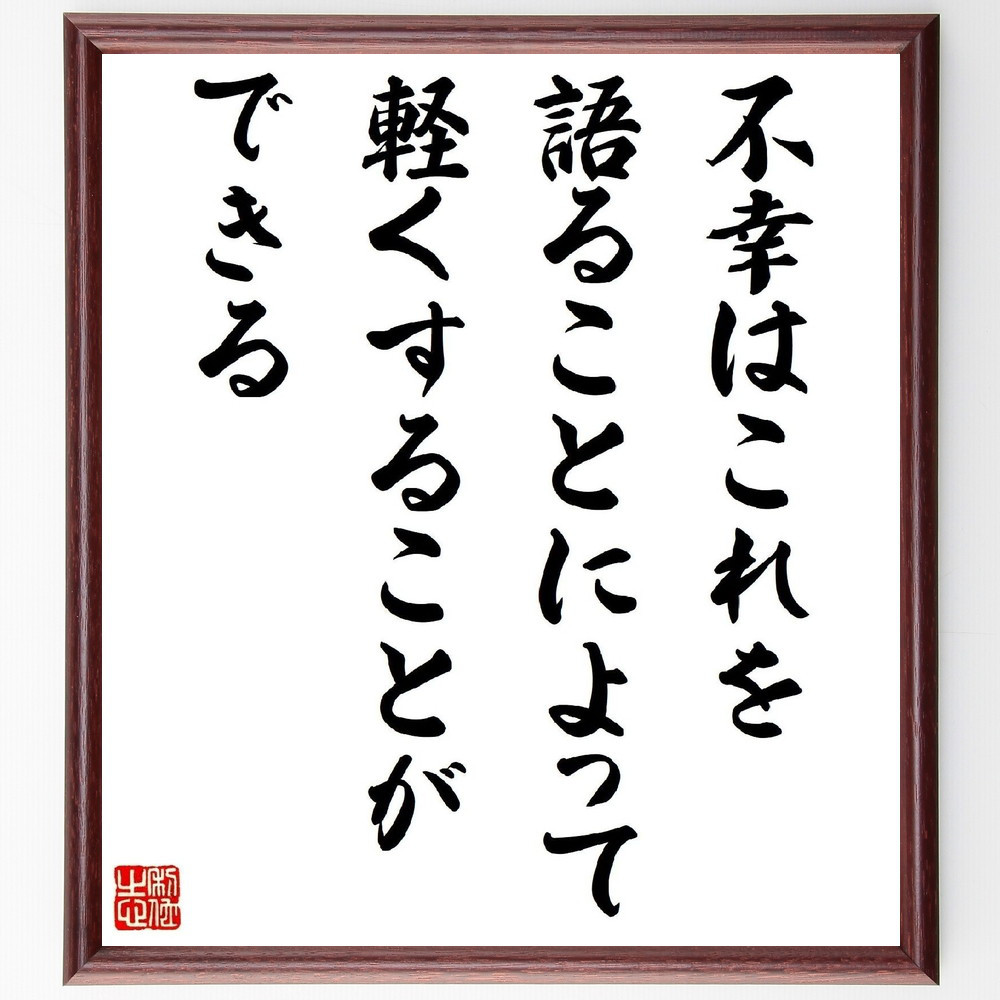 不幸はこれを
語ることによって
軽くすることが
できる